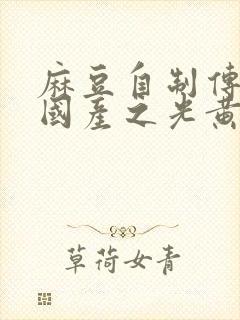 麻豆自制傳
國産之光黄
草荷女青